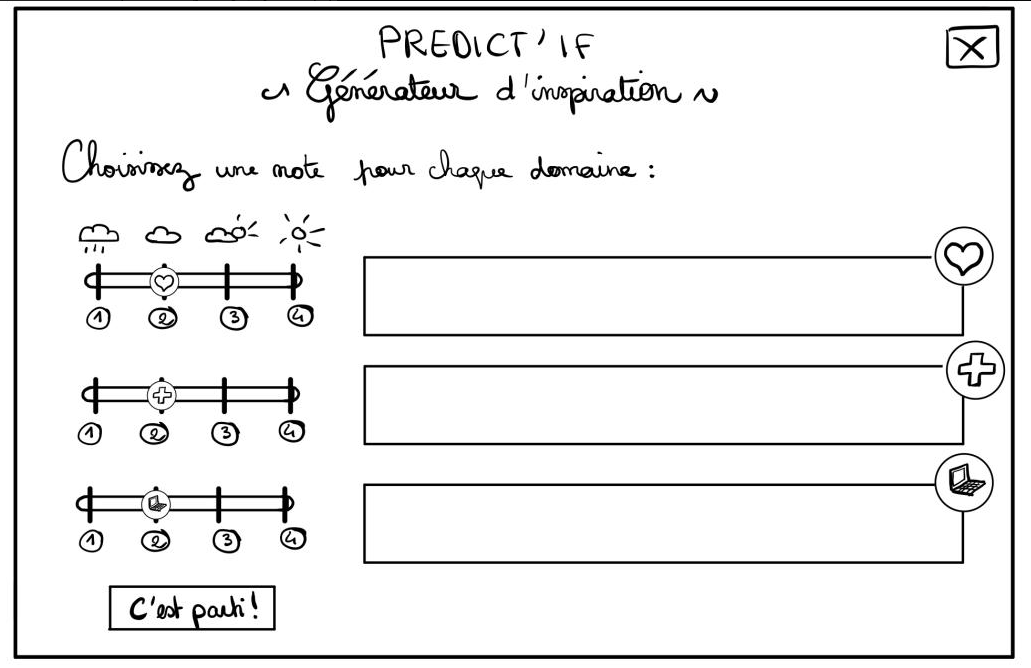 PREDICT' IF
~ Générateur d'inspiration ~
Choisissez une note pour chaque domaine :
1 2 3 4
1 2 3 4
1 2 3 4
C'est parti !